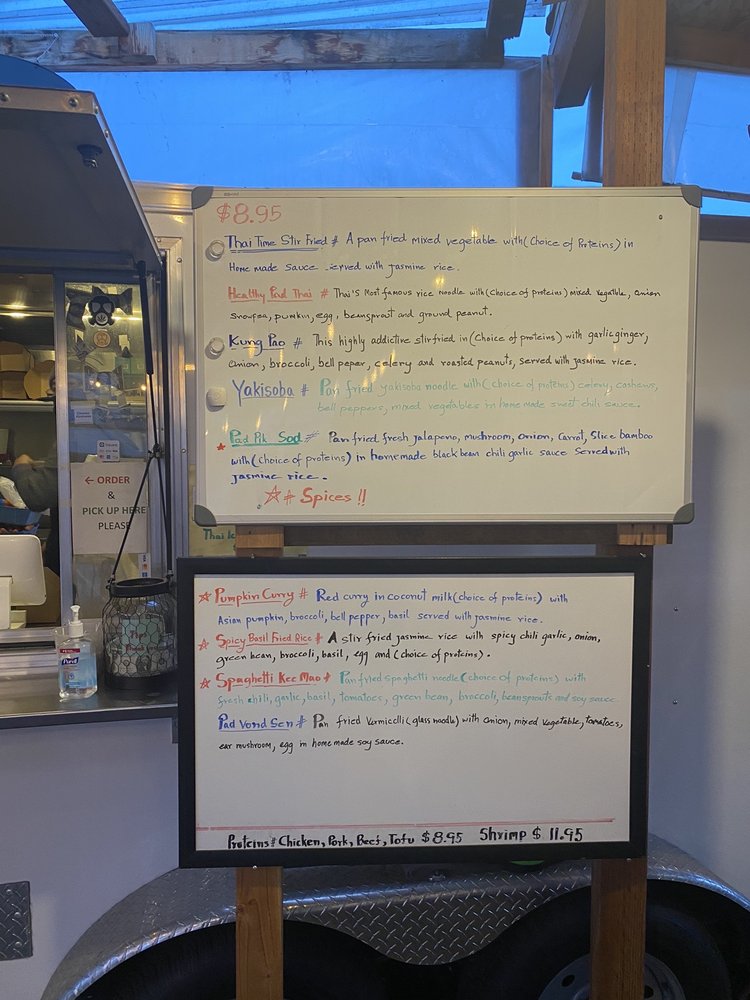 $8.95
Thai Time Stir Fried # A pan fried mixed vegetable with (Choice of Proteins) in
Home made Sauce served with Jasmine rice.
Healthy Pad Thai # Thai's Most famous rice noodle with (Choice of proteins) mixed vegetble, onion
snowpea, pumkin, egg, beansprout and ground peanut.
Kung Pao # This highly addictive stirfried in (Choice of proteins) with garlic ginger,
onion, broccoli, bell peper, celery and roasted peanuts, served with jasmine rice.
Yakisoba # Pan fried yakisoba noodle with (choice of proteins) celery, cashews,
bell peppers, mixed vegetables in home made sweet chili sauce.
Pad Pik Sod # Pan fried fresh jalapeno, mushroom, onion, carrot, slice bamboo
with (choice of proteins) in homemade black bean chili garlic sauce served with
jasmine rice.
☆# Spices !!
← ORDER
&
PICK UP HERE
PLEASE
☆ Pumpkin Curry # Red curry in coconut milk (choice of proteins) with
Asian pumpkin, broccoli, bell pepper, basil served with jasmine rice.
☆ Spicy Basil Fried Rice # A stir fried jasmine rice with spicy chili garlic, onion,
green bean, broccoli, basil, egg and (choice of proteins).
☆ Spaghetti Kee Mao # Pan fried spaghetti noodle (choice of proteins) with
fresh chili, garlic, basil, tomatoes, green bean, broccoli, beansprouts and soy sauce
Pad Vond Sen # Pan fried Vermicelli (glass noodle) with onion, mixed vegetable, tomatoes,
ear mushroom, egg in home made soy sauce.
Proteins # Chicken, Pork, Beef, Tofu $8.95 Shrimp $ 11.95
Purell